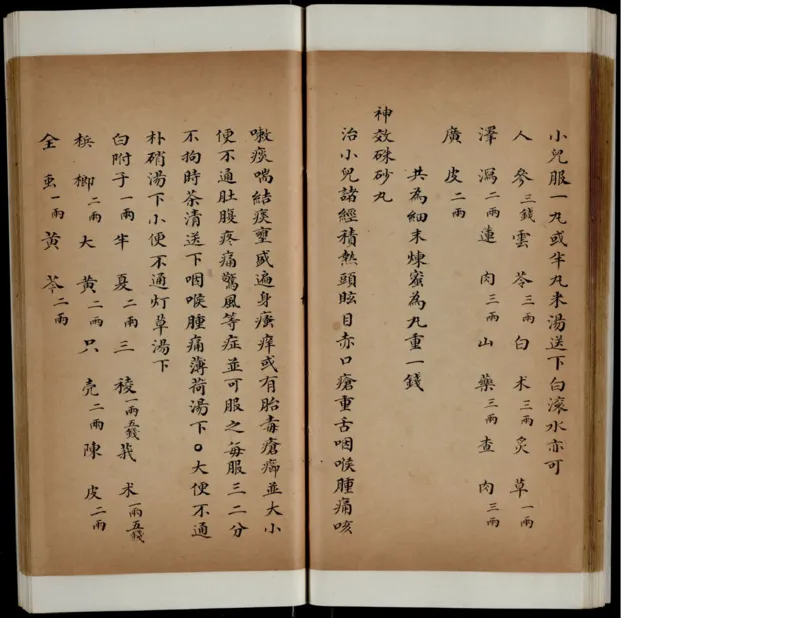 小兒服一丸或半丸米湯送下白滾水亦可
人參三錢雲苓三兩白术三兩炙草一兩
澤瀉二兩蓮肉三兩山藥三兩查肉三兩
廣皮二兩
共為細末煉蜜為丸重一錢
神效硃砂丸
治小兒諸經積熱頭眩目赤口瘡重舌咽喉腫痛咳
嗽痰喘結痰壅盛遍身瘙痒或有胎毒瘡癤並大小
便不通肚腹疼痛驚風等症並可服之每服三二分
不拘時茶清送下咽喉腫痛薄荷湯下○大便不通
朴硝湯下小便不通灯草湯下
白附子一兩半夏二兩三稜一兩五錢莪术一兩五錢
梹榔二兩大黃二兩只壳二兩陳皮二兩
全虫一兩黃芩二兩